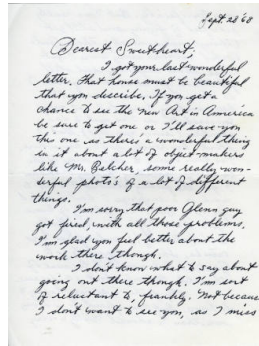 Sept. 28 '68
Dearest Sweetheart,
I got your last wonderful
letter. That house must be beautiful
that you describe. If you get a
chance to see the new Art in America
be sure to get one or I'll save you
this one as there's a wonderful thing
in it about a lot of object-makers
like Mr. Belcher, some really won-
derful photo's of a lot of different
things.
I'm sorry that poor Glenn guy
got fired, with all those problems.
I'm glad you feel better about the
work there though.
I don't know what to say about
going out there though. I'm sort
of reluctant to, frankly. Not because
I don't want to see you, as I miss